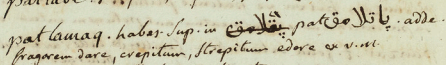 patlamaq. habes Sup. in پقلامق pat پاتلامق. adde.
fragorem dare, crepitum, strepitum edere ex v.m.